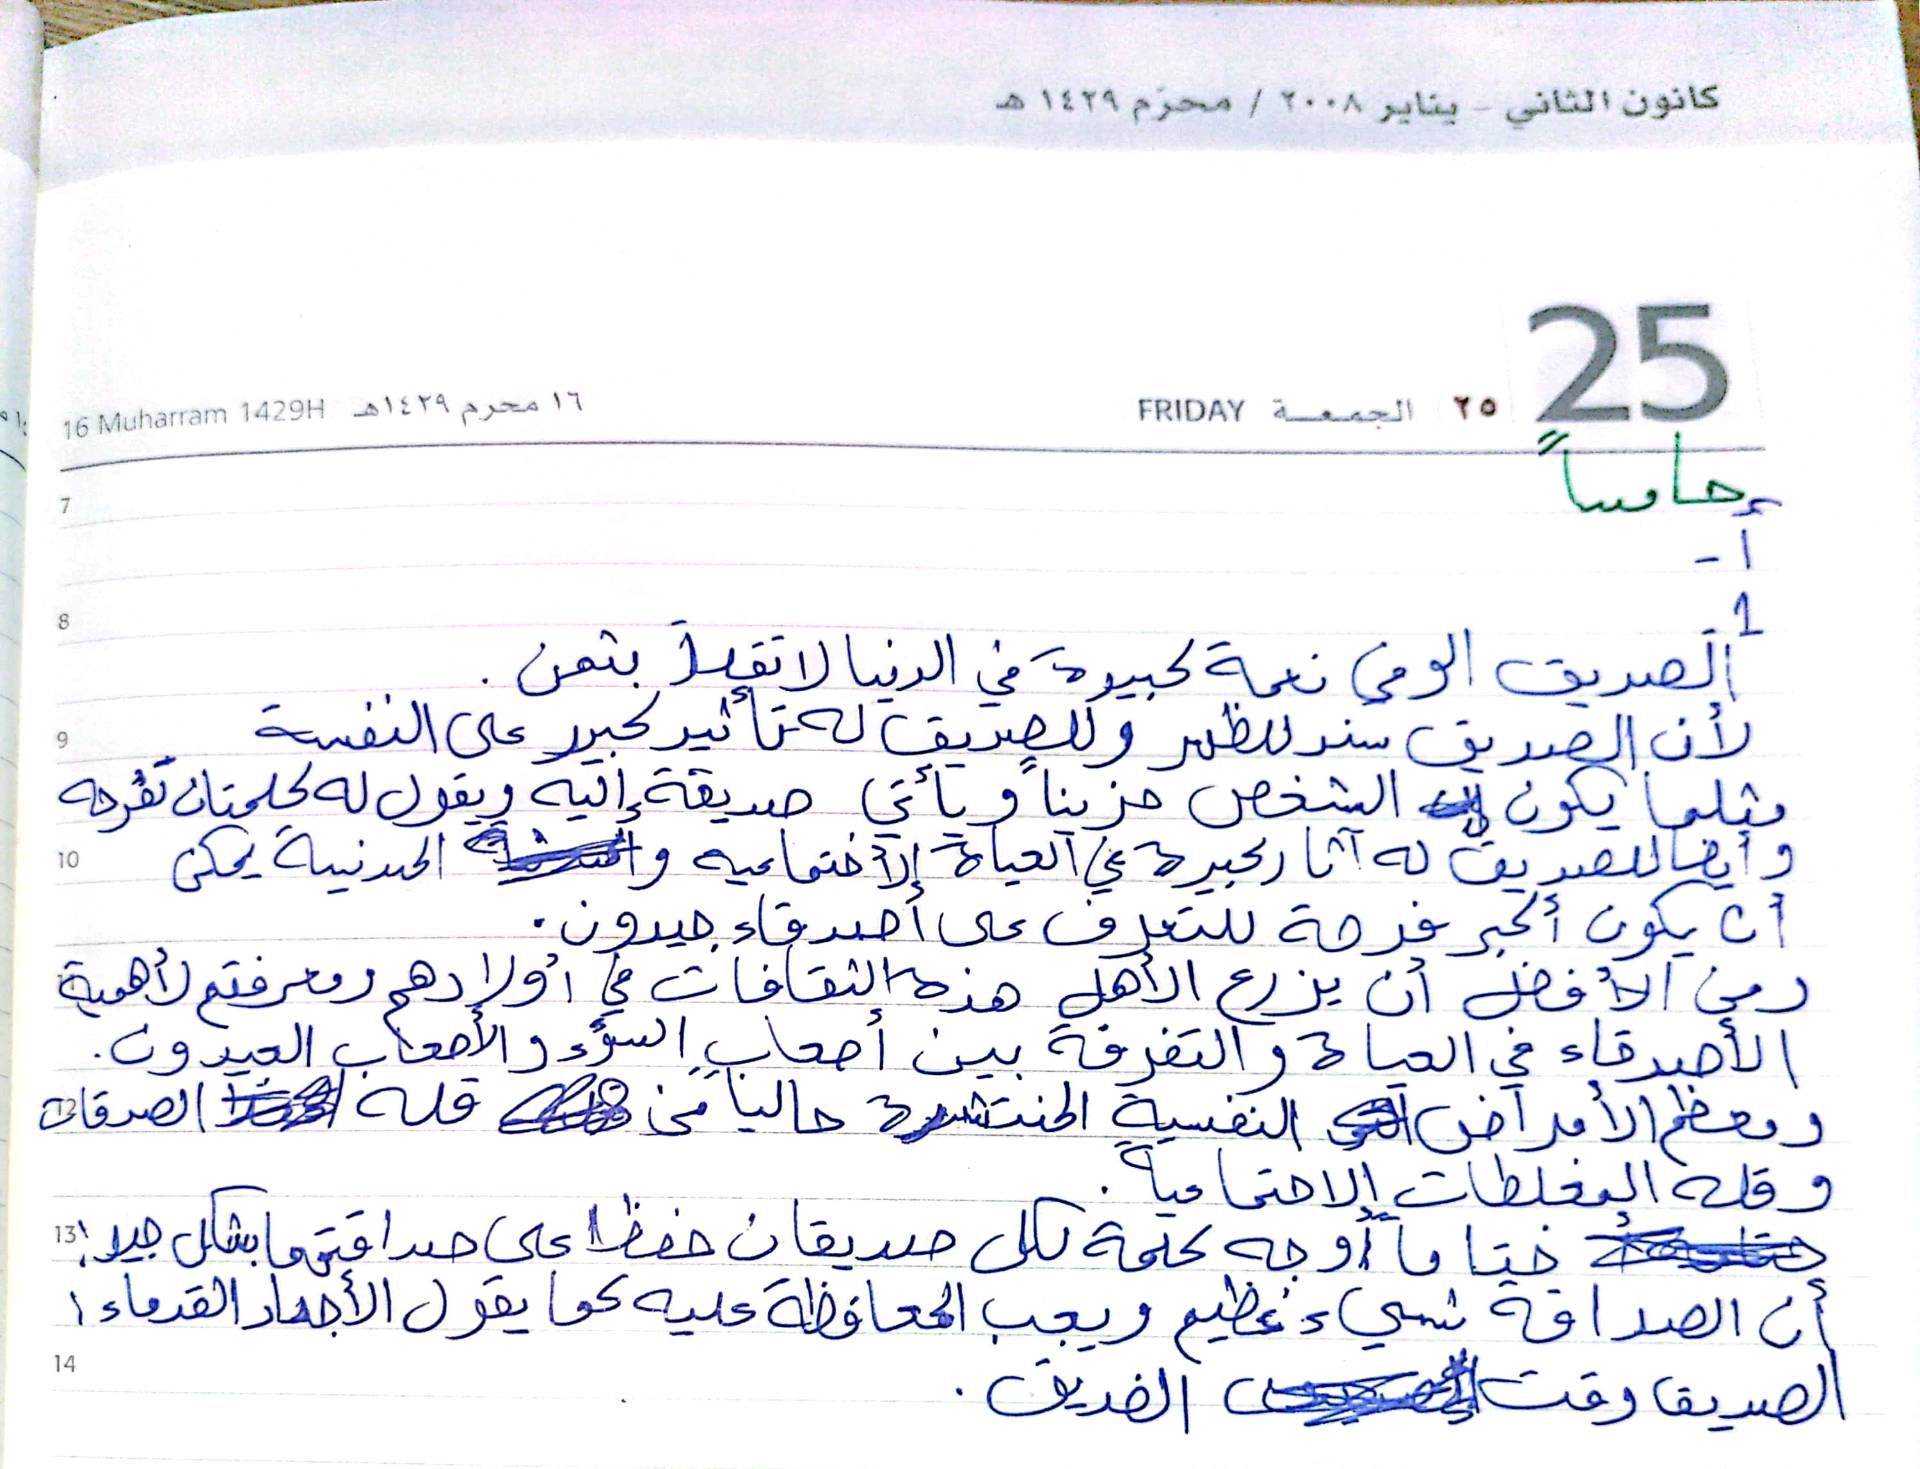 كانون الثاني - يناير ٢٠٠٨ / محرّم ١٤٢٩ هـ
25
16 Muharram 1429H ١٦ محرم ١٤٢٩هـ FRIDAY الجمعة ٢٥
خامساً
7
أ -
8
1
الصديق الوفي نعمة كبيرة في الدنيا لا تقدر بثمن .
9
لأن الصديق سند للظهر وللصديق له تأثير كبير على النفسة
مثلما يكون الشخص حزيناً ويأتي صديقة إليه ويقول له كلمتان تفرحه
10
وأيضا للصديق له آثار كبيرة في الحياة الإختماعيه و المدنية يمكن
أن يكون أكبر فرحة للتعرف على أصدقاء جيدون .
ومن الأفضل أن يزرع الأهل هذه الثقافات في أولادهم ومعرفتم لأهمية
الأصدقاء في الحياة والتفرقة بين أصحاب السؤء والأصحاب الجيدون .
12
ومعظم الأمراض النفسية المنتشرة حالياً من قله الصدقات
وقله المخلطات الإجتماعية .
13
ختاماً أوجه كلمة لكل صديقان حفظا على صداقتهما بشكل جيد ؛
أن الصداقة شيء عظيم ويجب المحافظة عليه كما يقول الأجداد القدماء ؛
14
الصديق وقت الضيق .